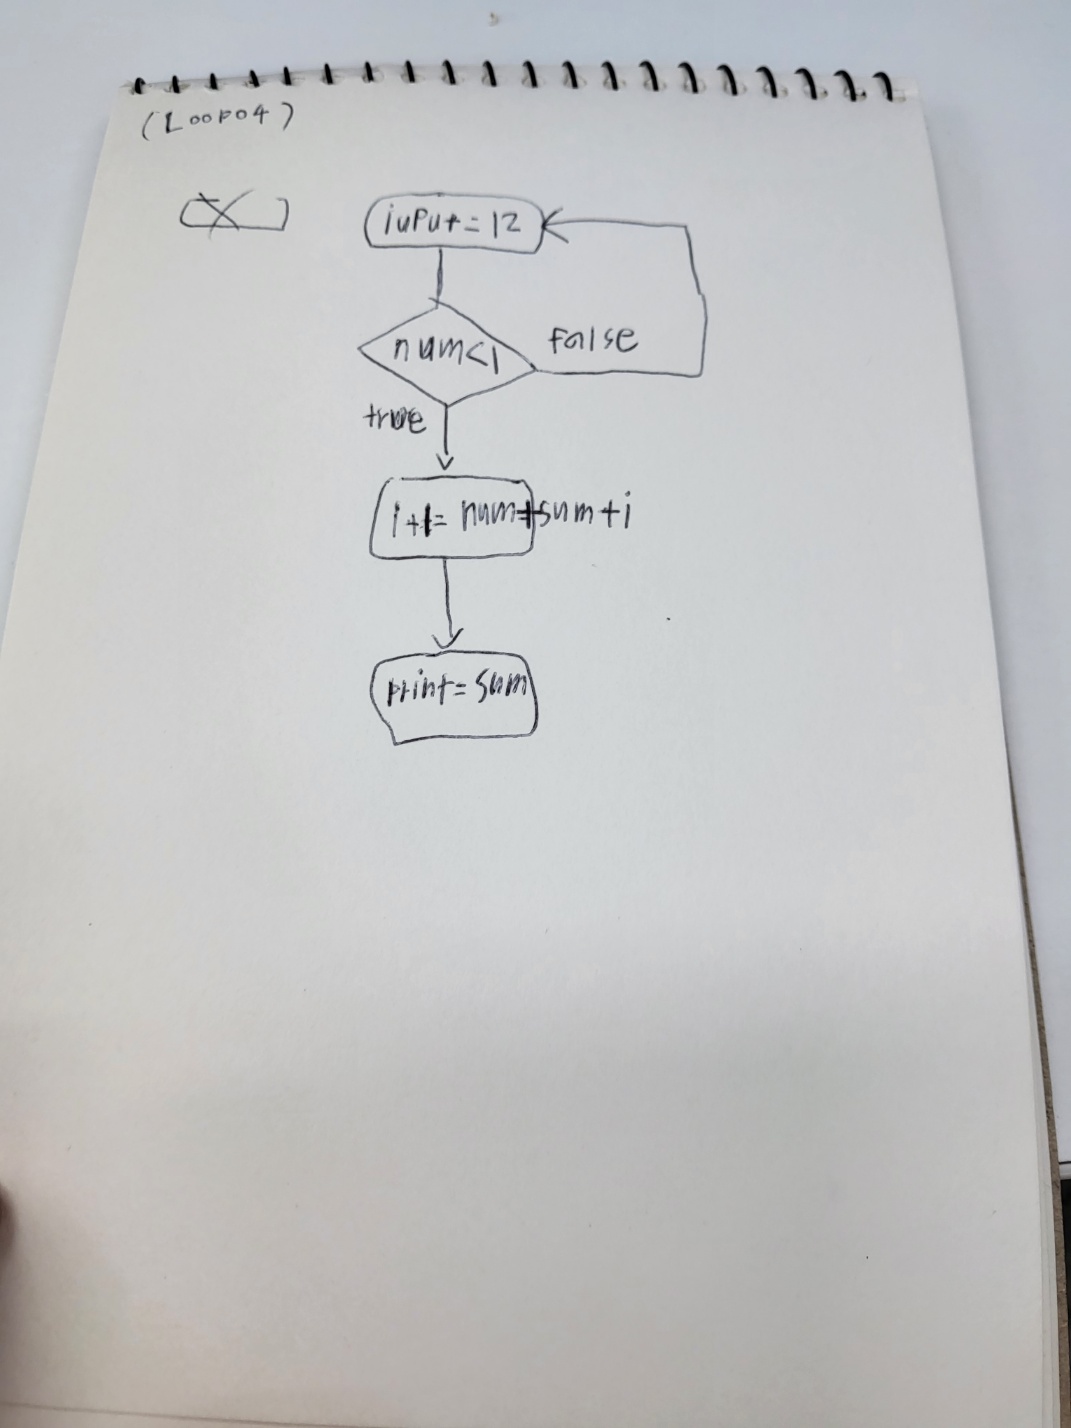 (Loop04)
iuput=12
num<1
false
true
i+1= num+sum+i
print=sum